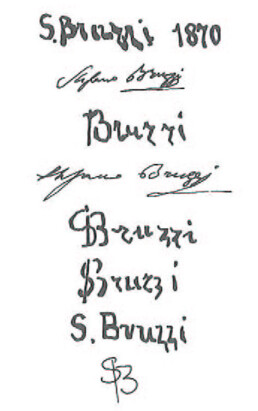 S. Bruzzi 1870
Stefano Bruzzi
Bruzzi
Stefano Bruzzi
SBruzzi
SBruzzi
S. Bruzzi
SB